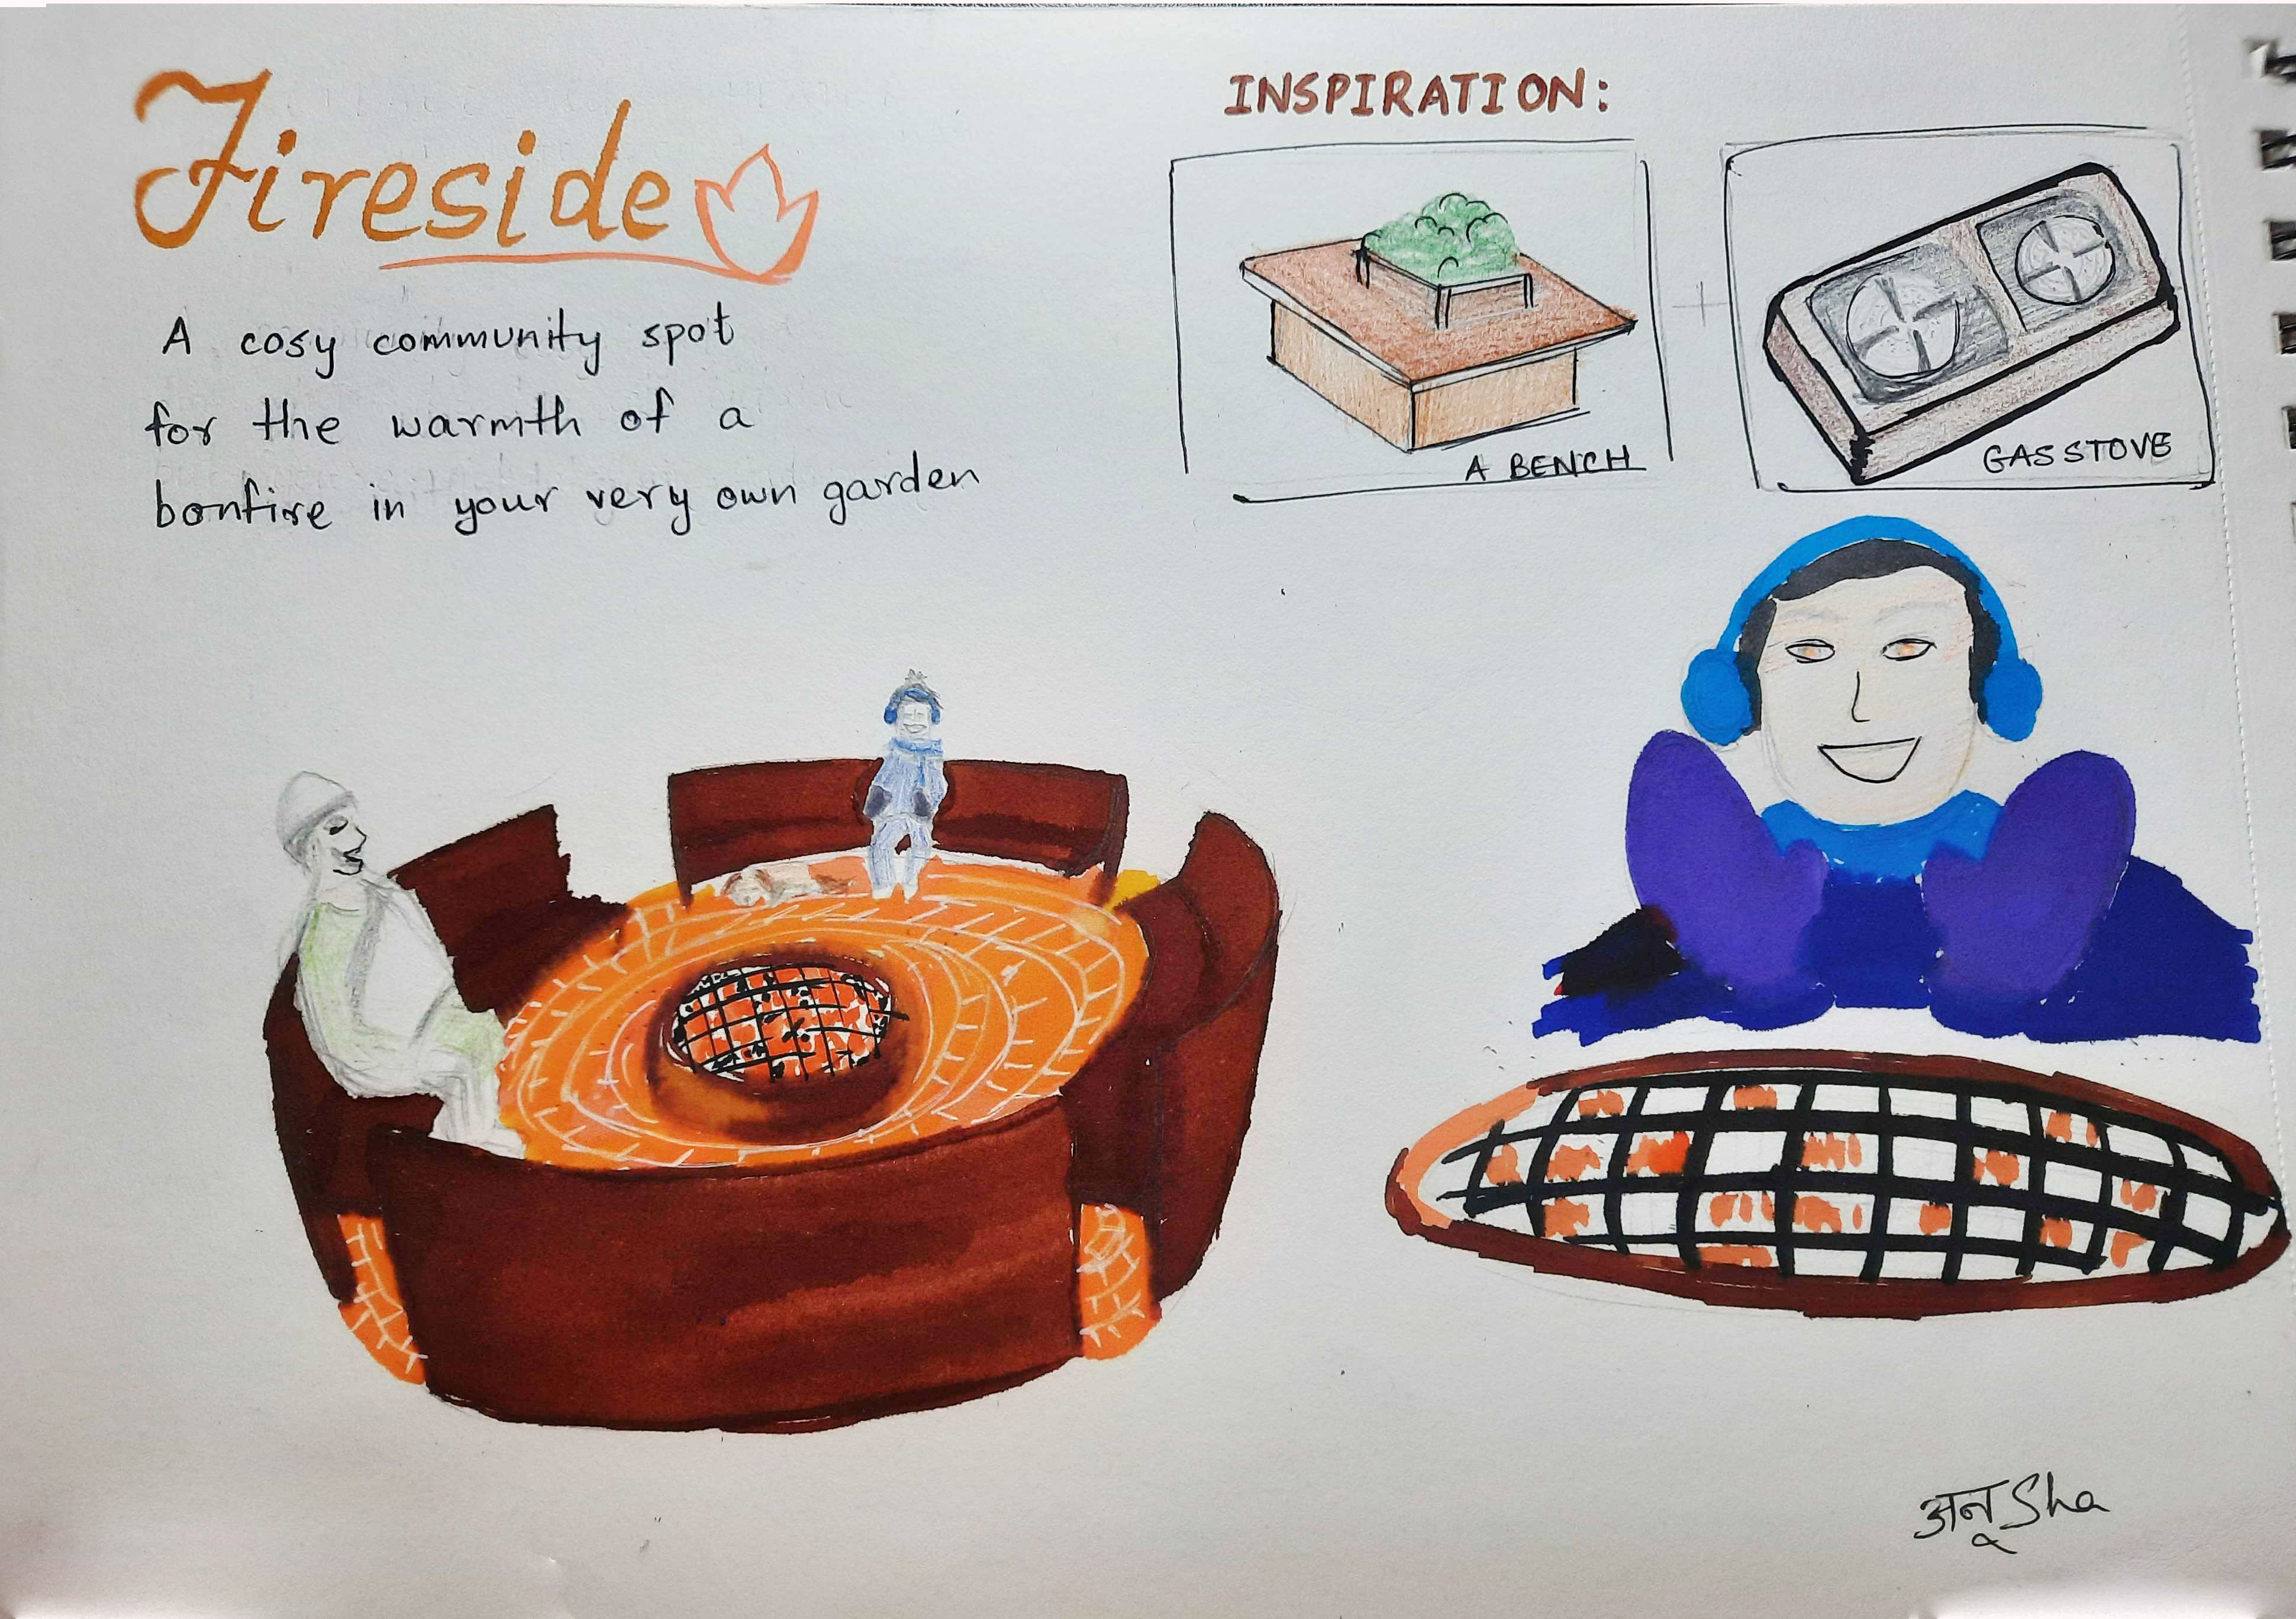 Fireside
A cosy community spot
for the warmth of a
bonfire in your very own garden
INSPIRATION:
A BENCH
+
GAS STOVE
अनूSha